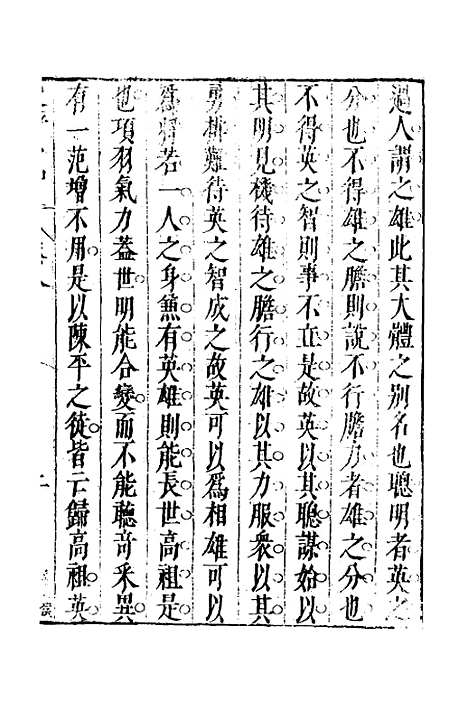 過人謂之雄此其大體之別名也聰明者英之
分也不得雄之膽則說不行膽力者雄之分也
不得英之智則事不立是故英以其聰謀始以
其明見機待雄之膽行之雄以其力服衆以其
勇排難待英之智成之故英可以爲相雄可以
爲將若一人之身兼有英雄則能長世高祖是
也項羽氣力蓋世明能合變而不能聽奇采異
有一范增不用是以陳平之徒皆亡歸高祖英